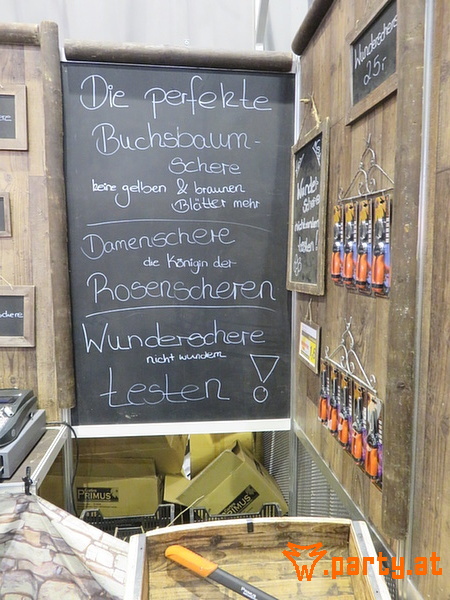 Die perfekte
Buchsbaum-
schere
keine gelben & braunen
Blätter mehr
Damenschere
die Königin der
Rosenscheren
Wunderschere
nicht wundern
testen!
Wunderschere
25,-
Wunder-
Schere
nicht wundern
testen!
schere
PRIMUS
PRIMUS
w.party.at